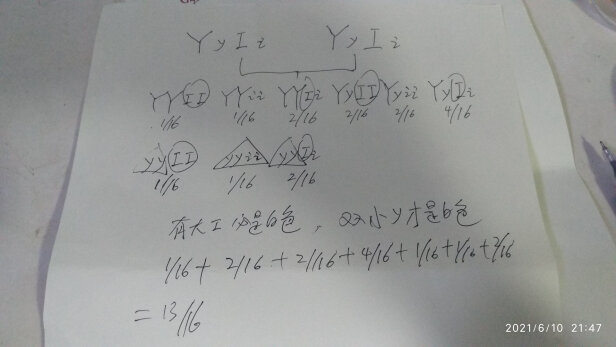 YyIi YyIi
YYII YYii YYIi YyII Yyii YyIi
1/16 1/16 2/16 2/16 2/16 4/16
yyII yyii yyIi
1/16 1/16 2/16
有大I必是白色，双小y才是白色
1/16+2/16+2/16+4/16+1/16+1/16+2/16
=13/16
2021/6/10 21:47